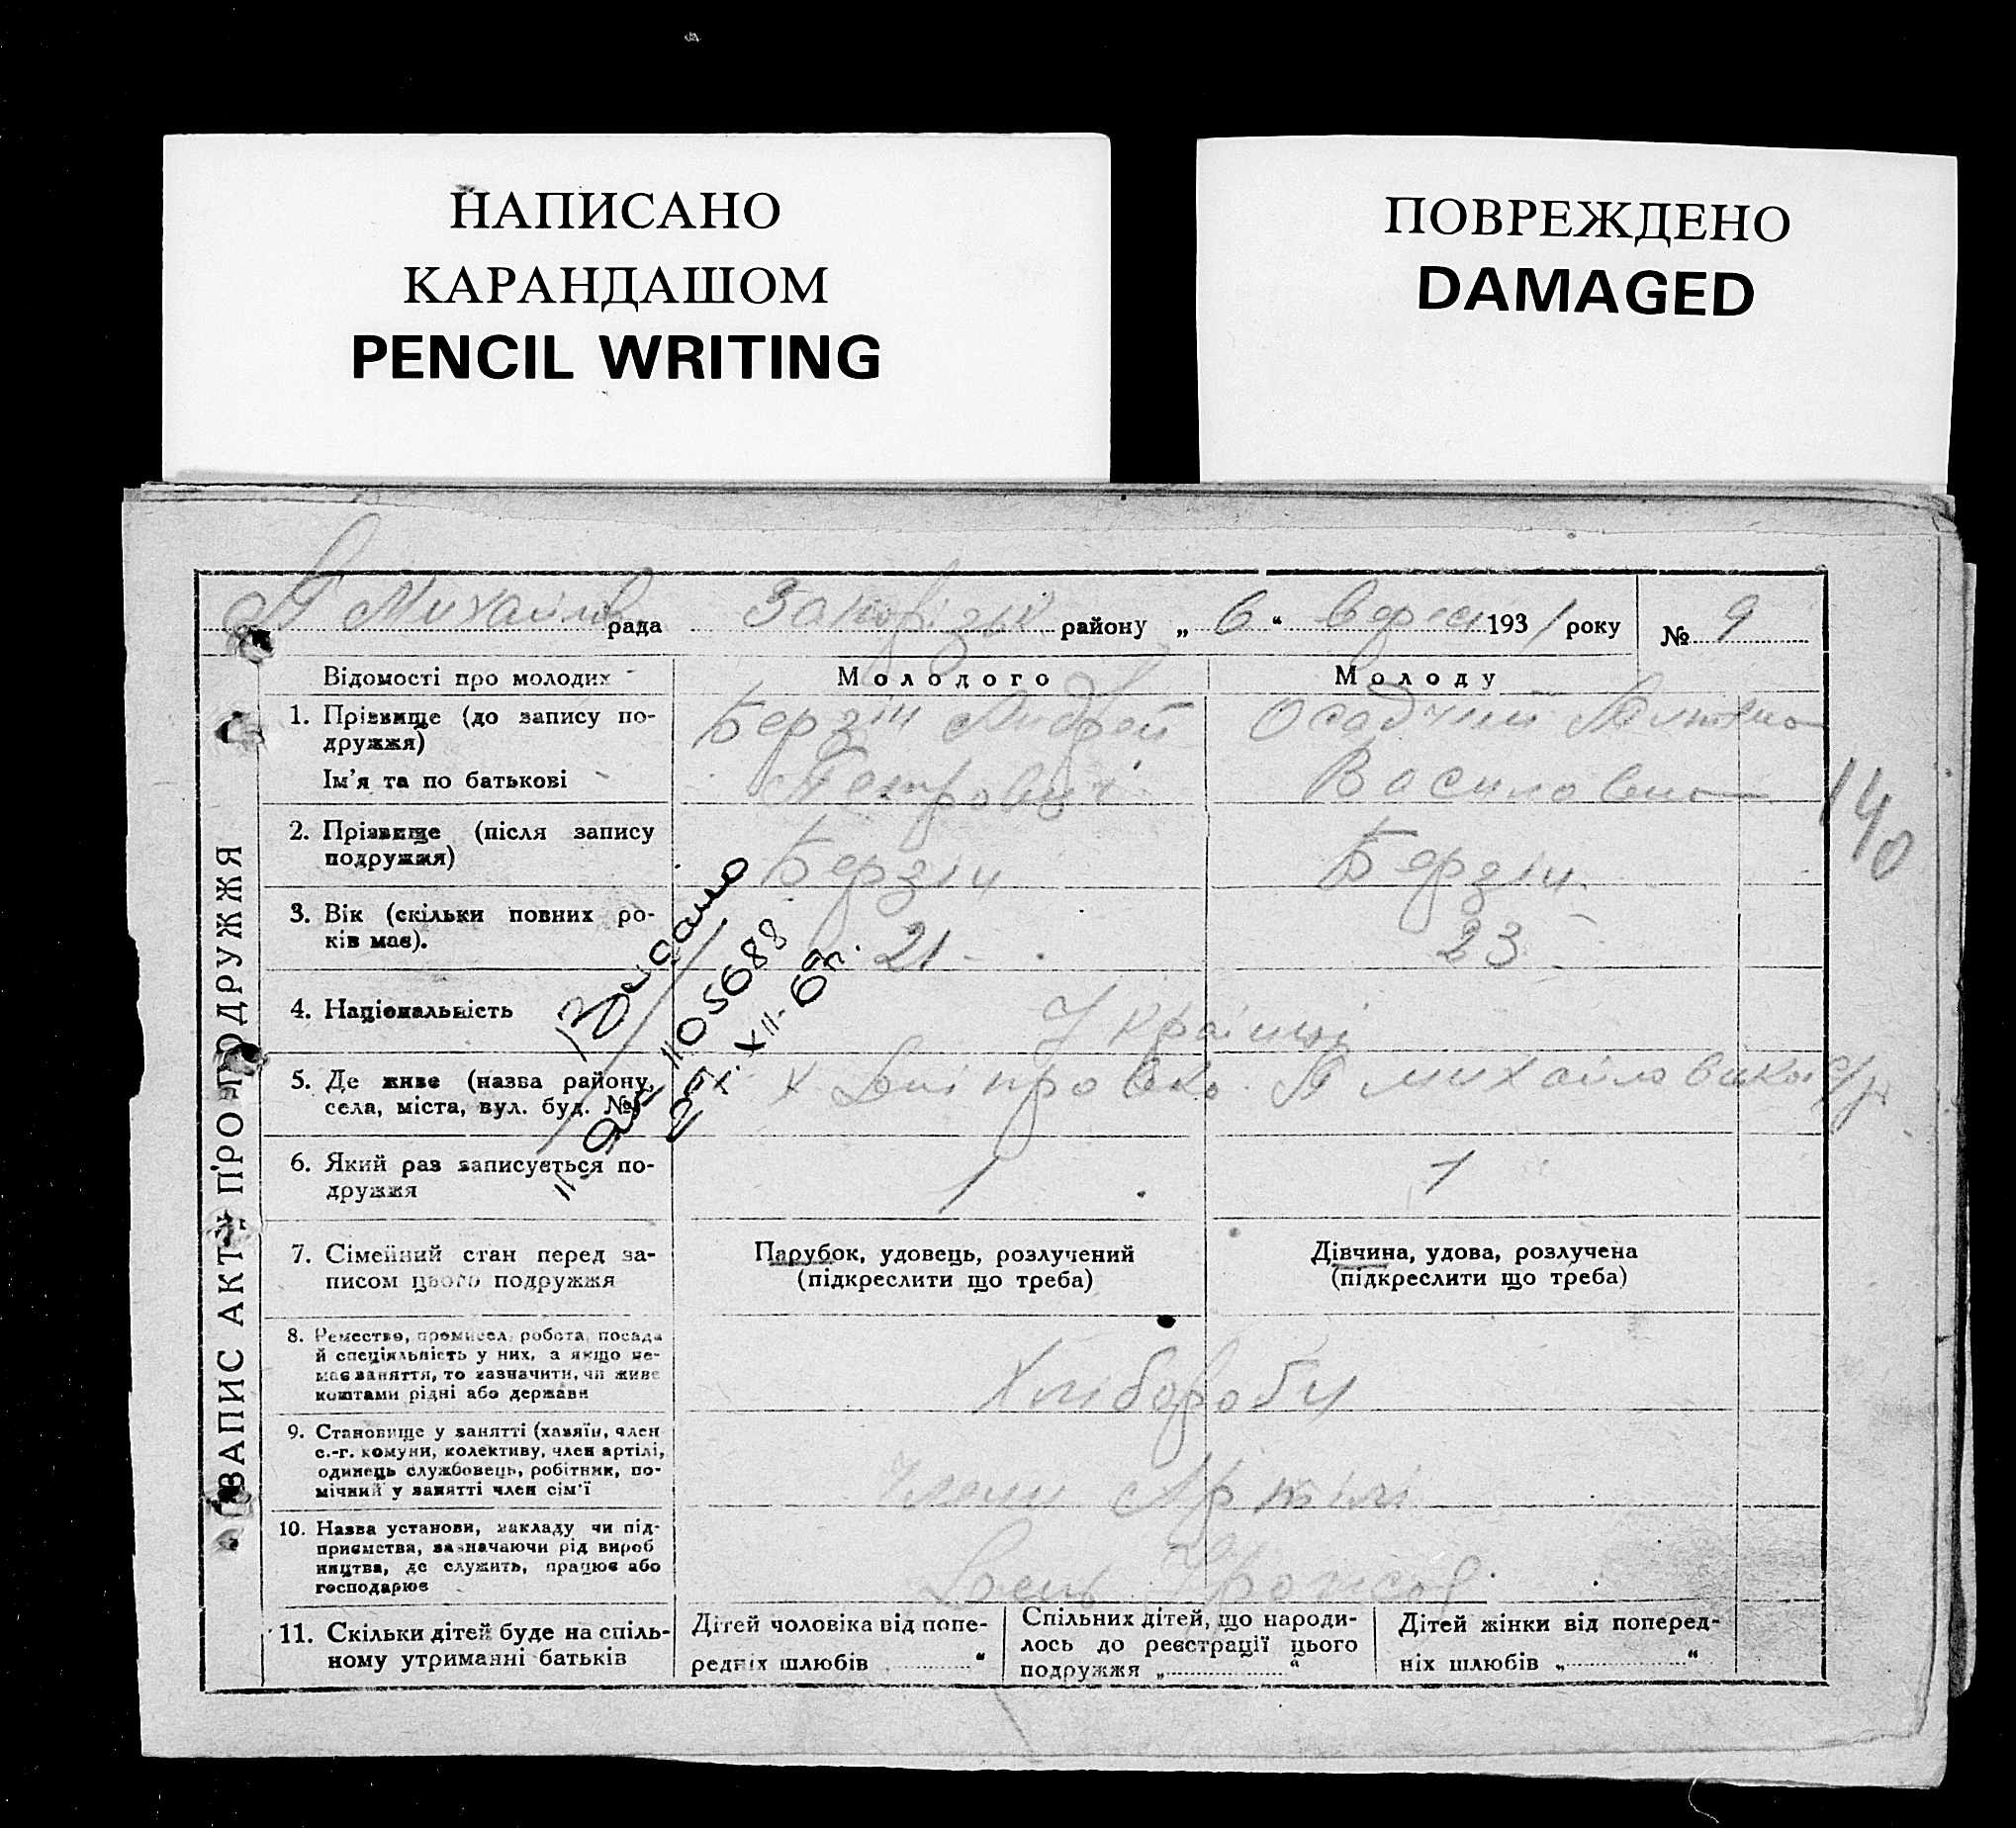 НАПИСАНО
КАРАНДАШОМ
PENCIL WRITING
ПОВРЕЖДЕНО
DAMAGED
рада району „ 6 “ 1931 року № 9
ЗАПИС АКТУ ПРО ПОДРУЖЖЯ
Відомості про молодих Молодого Молоду
1. Прізвище (до запису по-
дружжя) Берзін Андрей
Ім'я та по батькові Петрович
2. Прізвище (після запису
подружжя) Берзін Берзін
3. Вік (скільки повних ро-
ків має). 21 23
4. Національність Українці
5. Де живе (назва району,
села, міста, вул. буд. №)
6. Який раз записується по-
дружжя 1 1
7. Сімейний стан перед за-
писом цього подружжя
Парубок, удовець, розлучений
(підкреслити що треба)
Дівчина, удова, розлучена
(підкреслити що треба)
8. Ремество, промисел, робота, посада
й спеціяльність у них, а якщо не-
має заняття, то зазначити, чи живе
коштами рідні або держави
Хлібороби
9. Становище у занятті (хазяїн, член
с.-г. комуни, колективу, член артілі,
одинець службовець, робітник, по-
мічний у занятті член сім'ї
Члени Артілі
10. Назва установи, закладу чи під-
приємства, зазначаючи рід вироб
ництва, де служить, працює або
господарює
11. Скільки дітей буде на спіль-
ному утриманні батьків
Дітей чоловіка від попе-
редніх шлюбів “
Спільних дітей, що народи-
лось до реєстрації цього
подружжя „ “
Дітей жінки від поперед-
ніх шлюбів „ “
Видано
105688
140